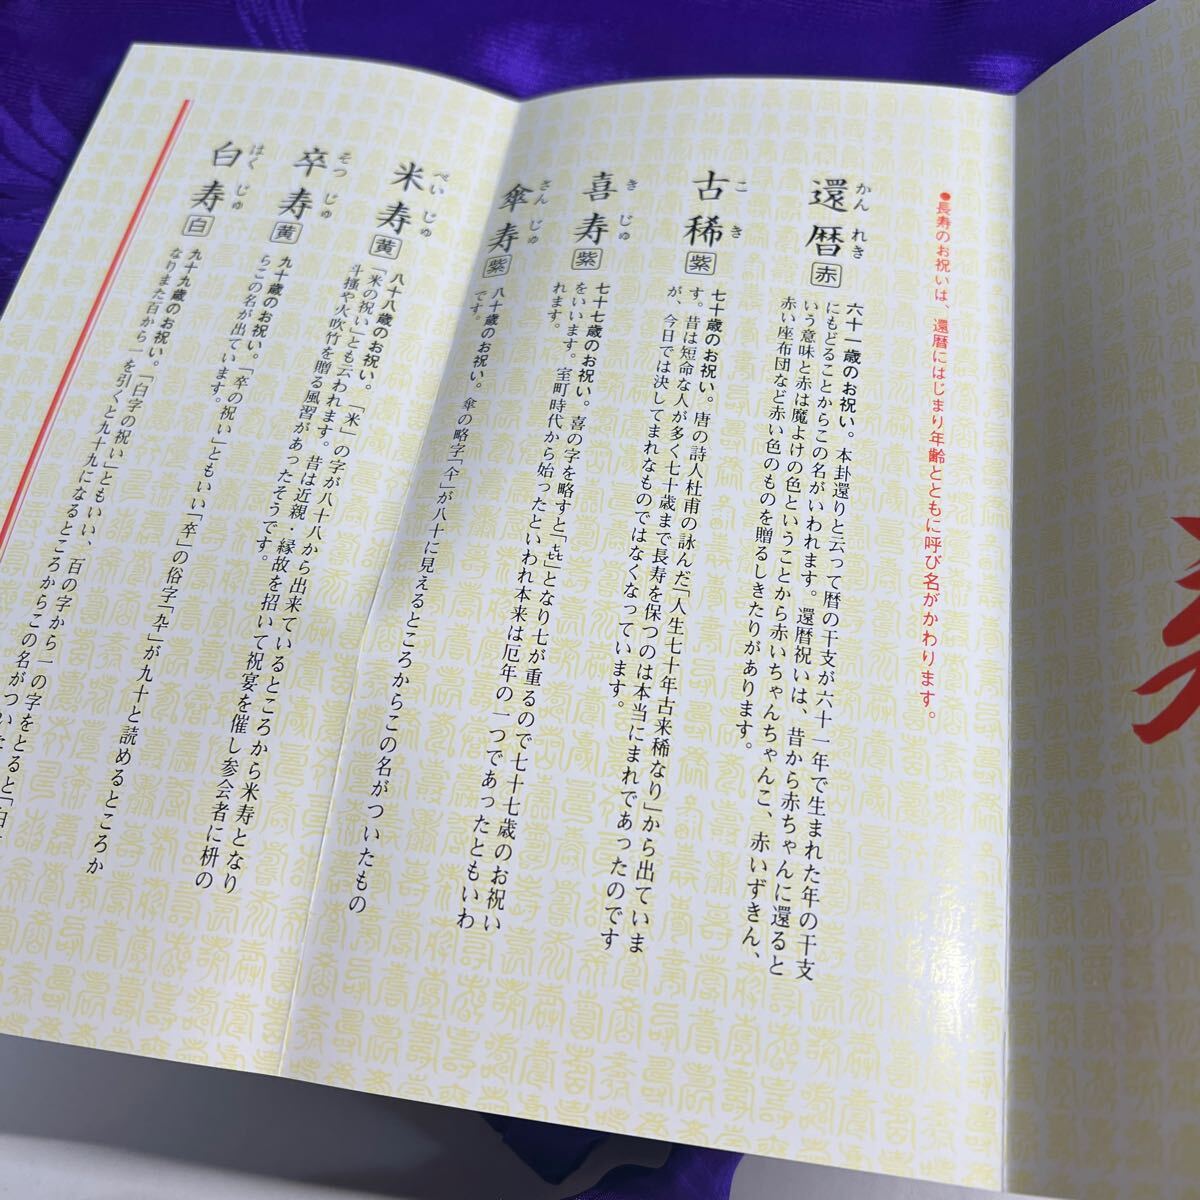 ●長寿のお祝いは、還暦にはじまり年齢とともに呼び名がかわります。
かん れき
還暦
赤
六十一歳のお祝い。本卦還りと云って暦の干支が六十一年で生まれた年の干支
にもどることからこの名がいわれます。還暦祝いは、昔から赤ちゃんに還ると
いう意味と赤は魔よけの色ということから赤いちゃんちゃんこ、赤いずきん、
赤い座布団など赤い色のものを贈るしきたりがあります。
こ き
古稀
紫
七十歳のお祝い。唐の詩人杜甫の詠んだ「人生七十年古来稀なり」から出ていま
す。昔は短命な人が多く七十歳まで長寿を保つのは本当にまれであったのです
が、今日では決してまれなものではなくなっています。
き じゅ
喜寿
紫
七十七歳のお祝い。喜の字を略すと「㐂」となり七が重るので七十七歳のお祝い
をいいます。室町時代から始ったといわれ本来は厄年の一つであったともいわ
れます。
さん じゅ
傘寿
紫
八十歳のお祝い。傘の略字「仐」が八十に見えるところからこの名がついたもの
です。
べい じゅ
米寿
黄
八十八歳のお祝い。「米」の字が八十八から出来ているところから米寿となり
「米の祝い」とも云われます。昔は近親・縁故を招いて祝宴を催し参会者に枡の
斗掻や火吹竹を贈る風習があったそうです。
そつ じゅ
卒寿
黄
九十歳のお祝い。「卒の祝い」ともいい「卒」の俗字「卆」が九十と読めるところか
らこの名が出ています。
はく じゅ
白寿
白
九十九歳のお祝い。「白字の祝い」ともいい、百の字から一の字をとると「白
なりまた百から一を引くと九十九になるところからこの名がついた